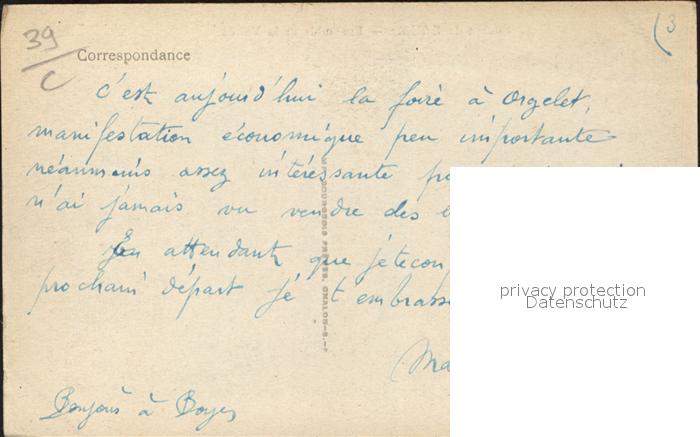 39
C
Correspondance
(3
C'est aujourd'hui la foire à Orgelet,
manifestation économique peu importante
néanmoins assez intéressante
n'ai jamais vu vendre des
En attendant que je te
prochain départ je t'embrasse
Bonjour à
BOURGEOIS FRERES, CHALON-S.-S
privacy protection
Datenschutz